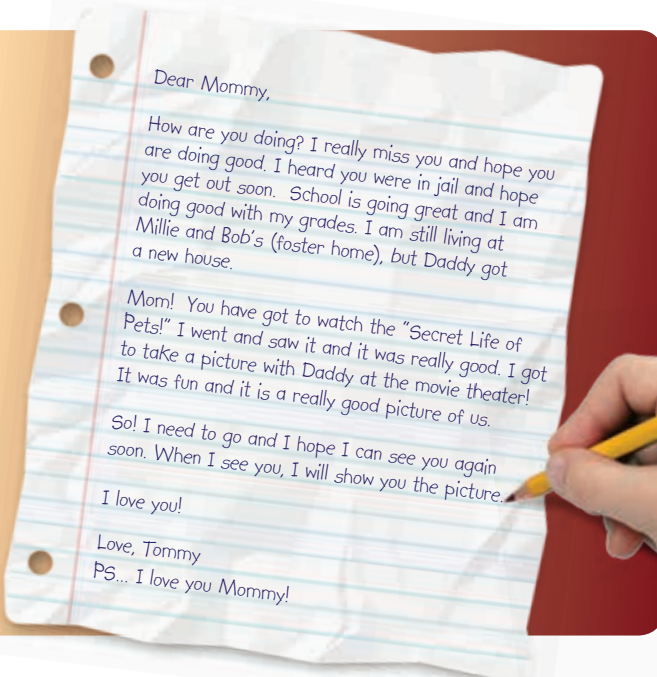 Dear Mommy,
How are you doing? I really miss you and hope you
are doing good. I heard you were in jail and hope
you get out soon. School is going great and I am
doing good with my grades. I am still living at
Millie and Bob's (foster home), but Daddy got
a new house.
Mom! You have got to watch the "Secret Life of
Pets!" I went and saw it and it was really good. I got
to take a picture with Daddy at the movie theater!
It was fun and it is a really good picture of us.
So! I need to go and I hope I can see you again
soon. When I see you, I will show you the picture.
I love you!
Love, Tommy
PS... I love you Mommy!